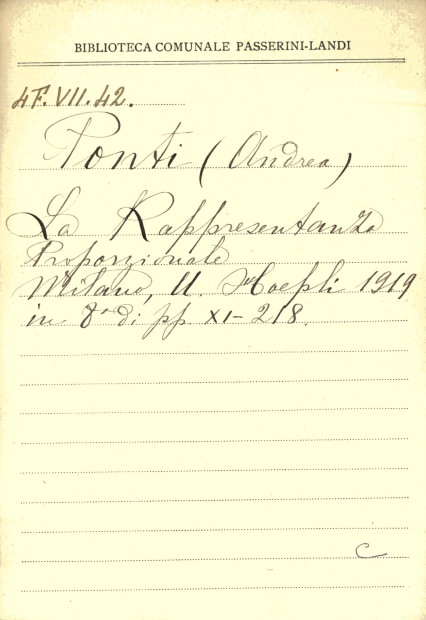 BIBLIOTECA COMUNALE PASSERINI-LANDI
4F.VII.42.
Ponti (Andrea)
La Rappresentanza
Proporzionale
Milano, U. Hoepli 1919
in 8° di pp XI-218.
C